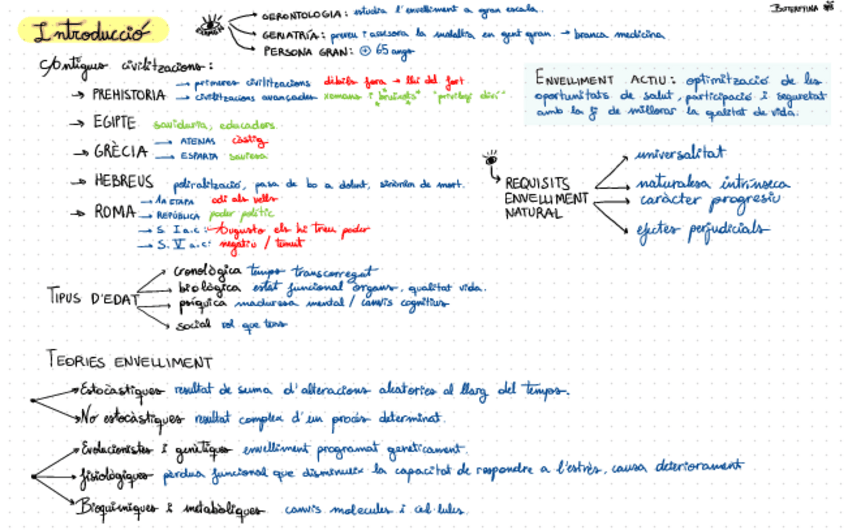 BUTERFYINA
Introducció
GERONTOLOGIA: estudia l'envelliment a gran escala.
GERIATRIA: preveu i assesora la malaltia en gent gran. → branca medicina
PERSONA GRAN: ⊕ 65 anys
Antigues civilitzacions:
→ PREHISTORIA → primeres civilitzacions dèbils fora → llei del fort
→ civilitzacions avançades xamans i "bruixots" "privilegi diví"
→ EGIPTE saviduria, educadors.
→ GRÈCIA → ATENAS càstig
→ ESPARTA saviesa
→ HEBREUS poliralització, pasa de bo a dolent, sinònim de mort.
→ ROMA → 1a ETAPA odi als vells
→ REPÚBLICA poder polític
→ S. I a.c: Augusto els hi treu poder
→ S. V a.c: negatiu / temut
ENVELLIMENT ACTIU: optimització de les
oportunitats de salut, participació i seguretat
amb la fi de millorar la qualitat de vida.
REQUISITS
ENVELLIMENT
NATURAL
universalitat
naturalesa intrínseca
caràcter progresiu
efectes perjudicials
TIPUS D'EDAT
cronològica temps transcorregut
biològica estat funcional òrgans, qualitat vida.
psíquica maduresa mental / canvis cognitius
social rol que tens
TEORIES ENVELLIMENT
Estocàstiques resultat de suma d'alteracions aleatories al llarg del temps.
No estocàstiques resultat complex d'un procés determinat.
Evolucionistes i genètiques envelliment programat genèticament.
fisiològiques pèrdua funcional que disminueix la capacitat de respondre a l'estrès, causa deteriorament
Bioquímiques i metabòliques canvis molecules i cel·lules.